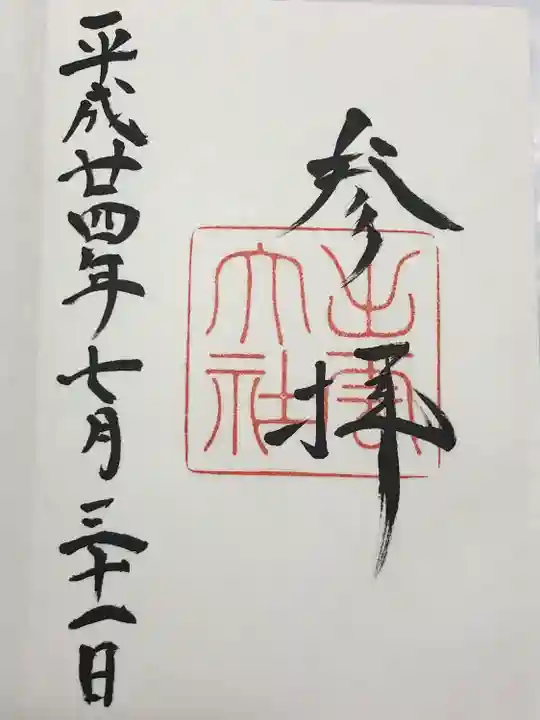 参拝
出雲大社
平成廿四年七月三十一日